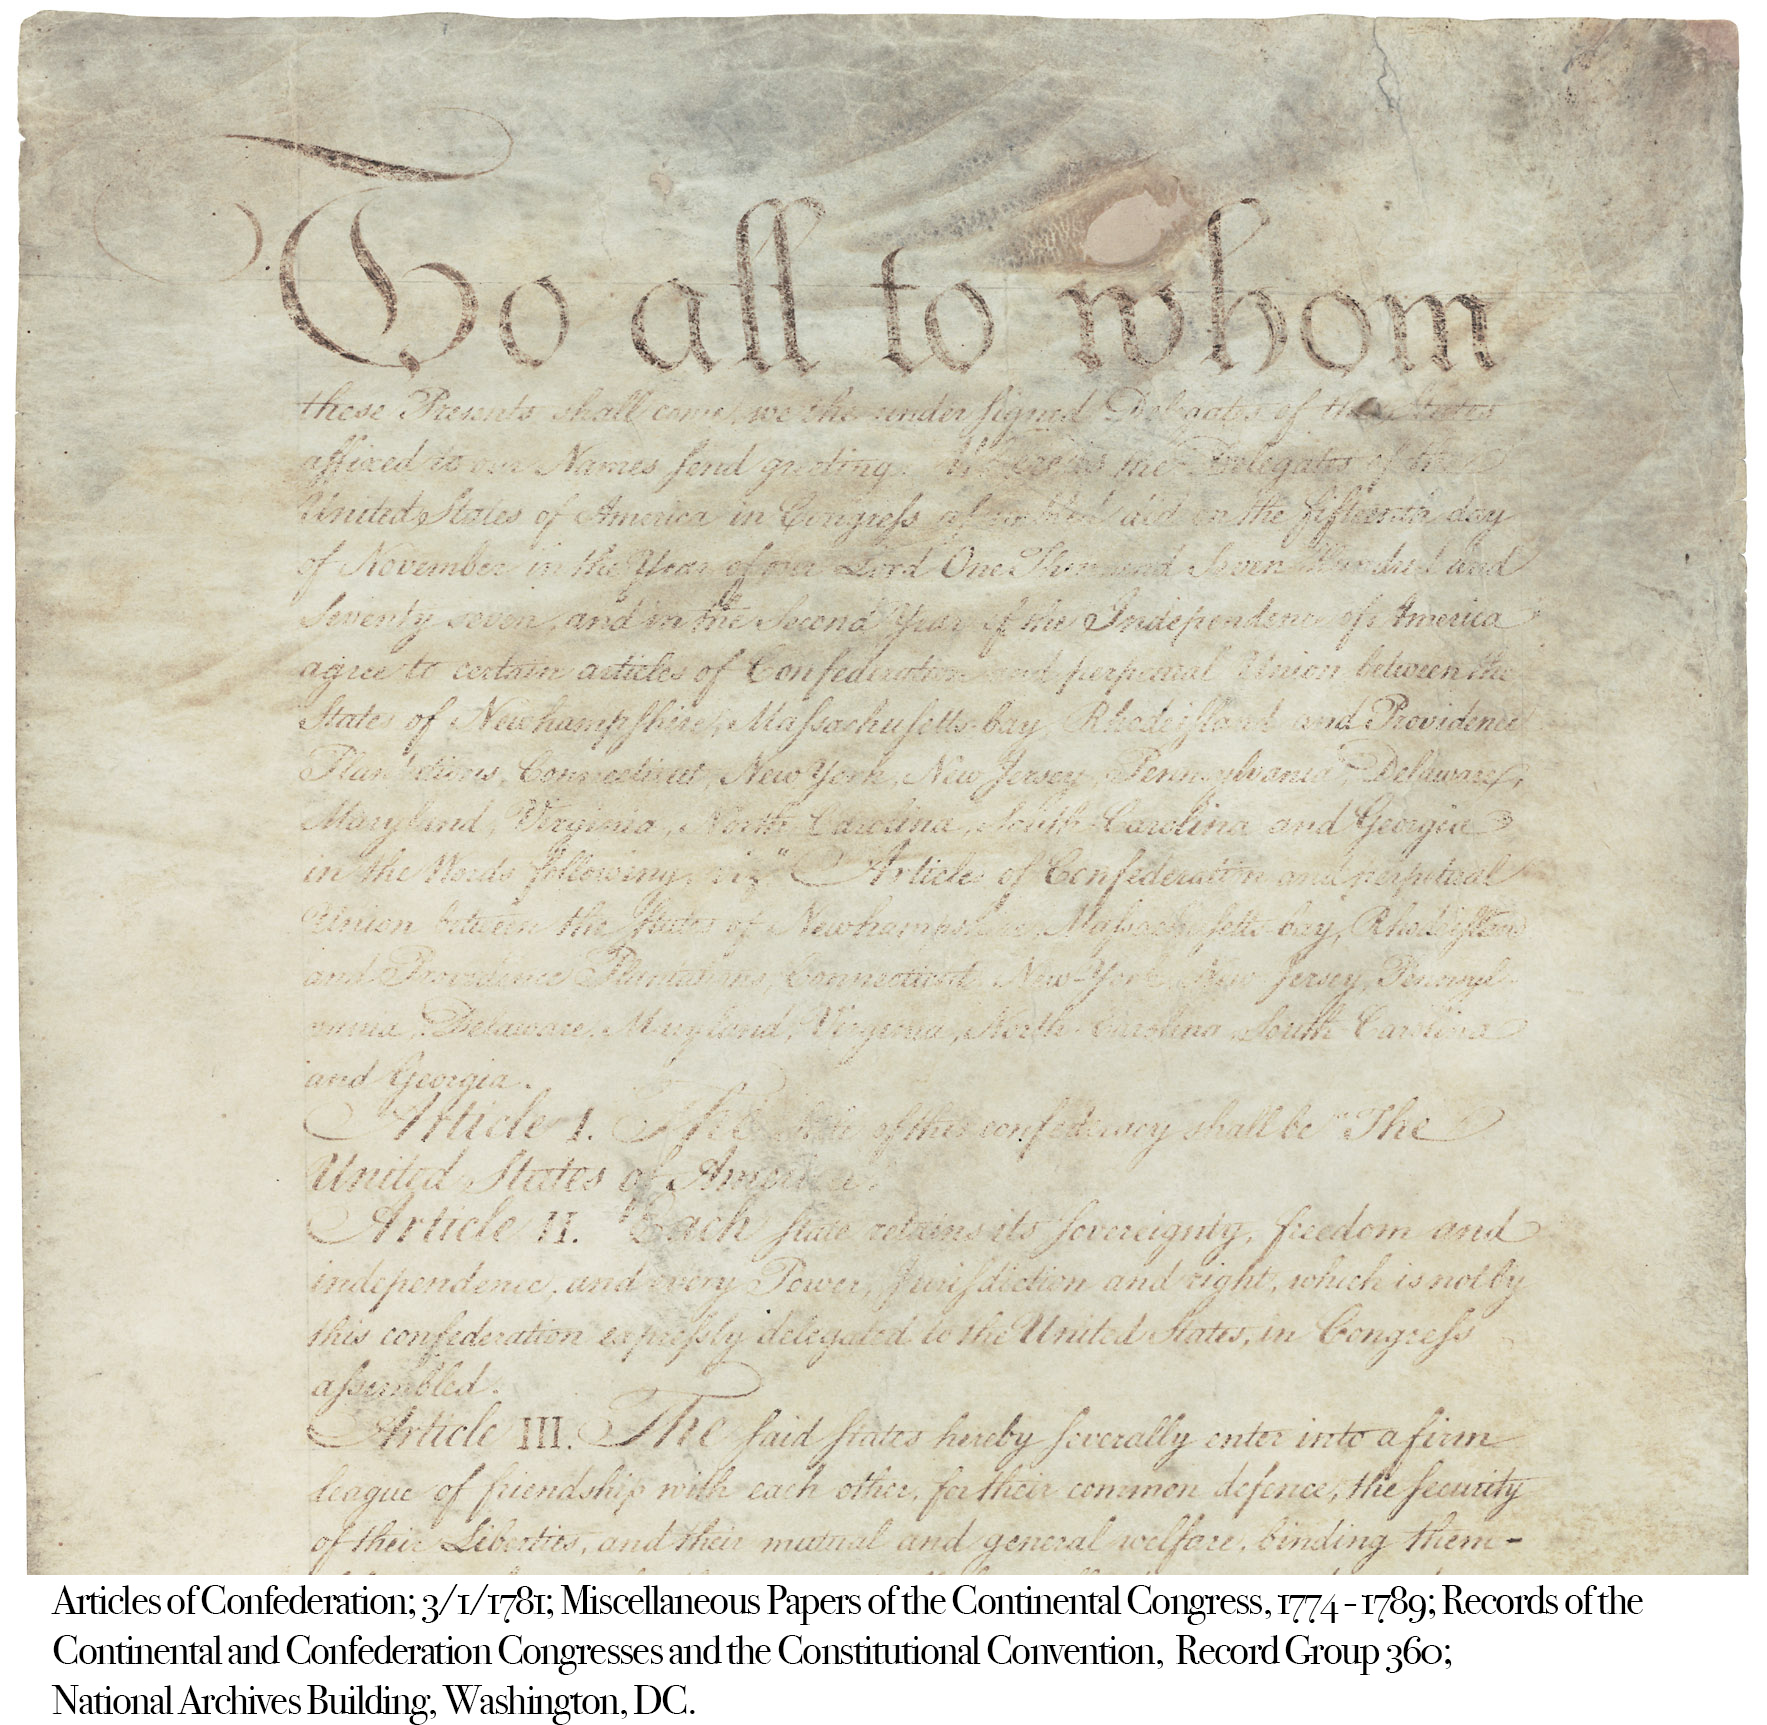 To all to whom
these Presents shall come, we the under signed Delegates of the States
affixed to our Names send greeting. Whereas the Delegates of the
United States of America in Congress assembled did on the fifteenth day
of November in the Year of our Lord One Thousand Seven Hundred and
Seventy seven, and in the Second Year of the Independence of America
agree to certain articles of Confederation and perpetual Union between the
States of Newhampshire, Massachusetts-bay, Rhodeisland and Providence
Plantations, Connecticut, New York, New Jersey, Pennsylvania, Delaware,
Maryland, Virginia, North-Carolina, South-Carolina and Georgia
in the Words following, viz. "Articles of Confederation and perpetual
Union between the States of Newhampshire, Massachusetts-bay, Rhodeisland
and Providence Plantations, Connecticut, New-York, New-Jersey, Pennsyl-
vania, Delaware, Maryland, Virginia, North-Carolina, South-Carolina
and Georgia.
Article I. The Stile of this confederacy shall be "The
United States of America."
Article II. Each state retains its sovereignty, freedom and
independence, and every Power, Jurisdiction and right, which is not by
this confederation expressly delegated to the United States, in Congress
assembled.
Article III. The said states hereby severally enter into a firm
league of friendship with each other, for their common defence, the security
of their Liberties, and their mutual and general welfare, binding them-
Articles of Confederation; 3/1/1781; Miscellaneous Papers of the Continental Congress, 1774 - 1789; Records of the
Continental and Confederation Congresses and the Constitutional Convention, Record Group 360;
National Archives Building, Washington, DC.